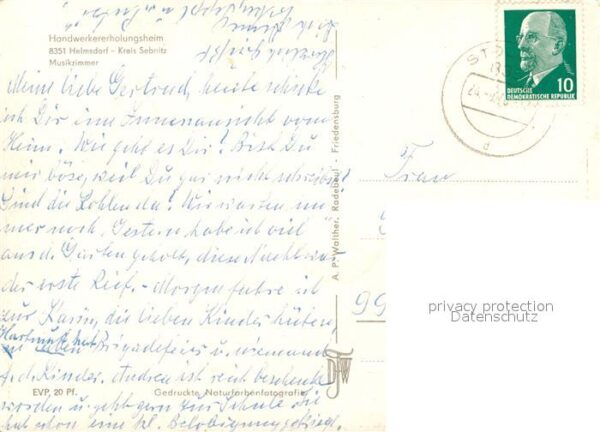 Handwerkererholungsheim
8351 Helmsdorf - Kreis Sebnitz
Musikzimmer
Meine liebe Gertrud, heute schicke
ich Dir eine Innenansicht vom
Heim. Wie geht es Dir? Bist Du
mir böse, weil Du gar nicht schreibst
Sind die Kohlen da? Wir warten im
mer noch. Gestern habe ich viel
aus d. Garten geholt, diese Nacht war
der erste Reif. - Morgen fahre ich
zur Karin, die lieben Kinder hüten,
Hartmut hat
Brigadefeier u. niemand
f. d. Kinder. Andrea ist reich beschenkt
worden u. geht gern zur Schule. Sie
hat schon eine kl. Belobigung gekriegt.
EVP, 20 Pf.
Gedruckte Naturfarbenfotografie
A. P. Walther, Radebeul - Friedensburg
DEUTSCHE
DEMOKRATISCHE REPUBLIK
10
Frau
99
privacy protection
Datenschutz